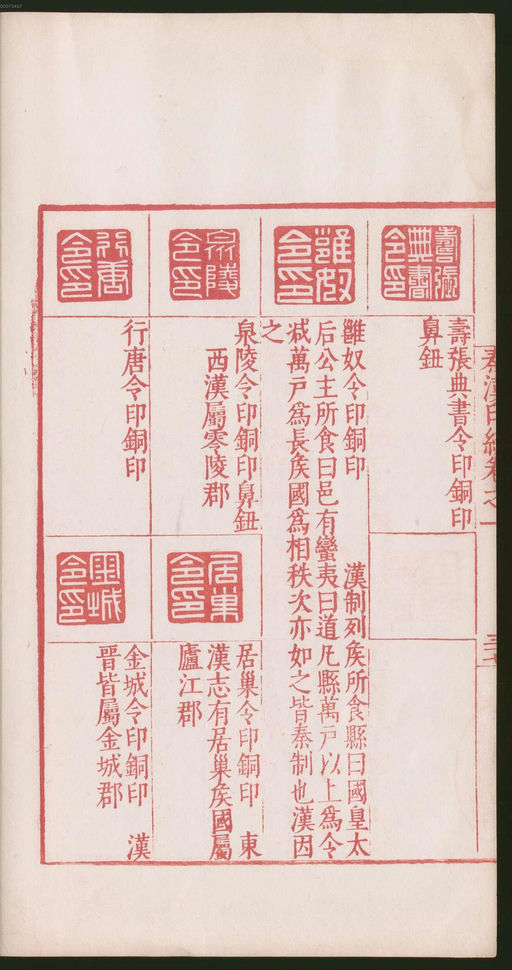 秦漢印統卷之一
壽張典書令印
壽張典書令印銅印
鼻鈕
雝奴令印
雝奴令印銅印　漢制列矦所食縣曰國皇太
后公主所食曰邑有蠻夷曰道凡縣萬戶以上爲令
減萬戶爲長矦國爲相秩次亦如之皆秦制也漢因
之
泉陵令印
泉陵令印銅印鼻鈕
西漢屬零陵郡
居巢令印
居巢令印銅印　東
漢志有居巢矦國屬
廬江郡
行唐令印
行唐令印銅印
金城令印
金城令印銅印　漢
晉皆屬金城郡
00073467